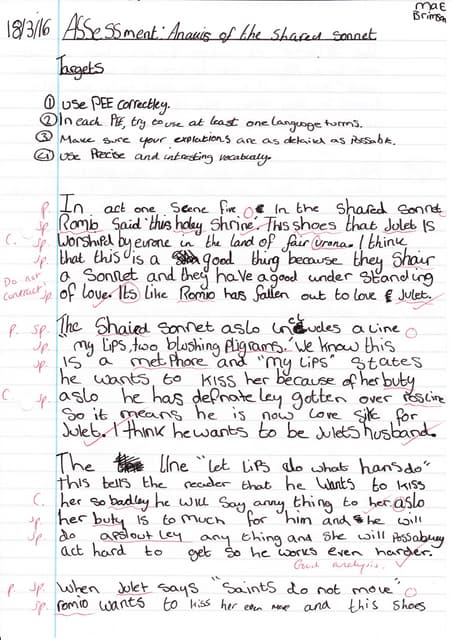 Mae
Brimson
18/3/16 Assessment: Anawis of the shared sonnet
Targets
① use PEE correctley.
② In each PEE, try to use at least one language turms.
③ Make sure your explations are as detaild as Possable.
④ use Precise and intresting vocabualy.
P. In act one Scene five, In the Shared Sonnet
sp Romio Said "this holey Shrine". This shoes that Julet is
C. sp. Worshipd by evrone in the land of fair Vrona. I think
sp. that this is a good thing because they Shair
Do not a Sonnet and they have a good under standing
contract! sp. of love. Its like Romio has fallen out to love & Julet.
P. sp. The Shaied Sonnet aslo includes a line
sp. "my lips, two blushing Pligrams." We know this
sp. is a metPhore and "my lips" States
he wants to kiss her because of her buty
C. sp. aslo he has defnate ley gotten over Rosline
So it means he is now love Sik for
Julet. I think he wants to be Julets husband.
The line "let lips do what hans do"
this tells the reader that he wants to kiss
C. her so badley he will Say anny thing to her aslo
sp. her buty is to much for him and he will
sp. do apslout ley any thing and She will Possabley
act hard to get so he works even harder.
Good analysis. ✓
P. sp. When Julet says "Saints do not move"
sp. romio wants to kiss her even more and this Shoes